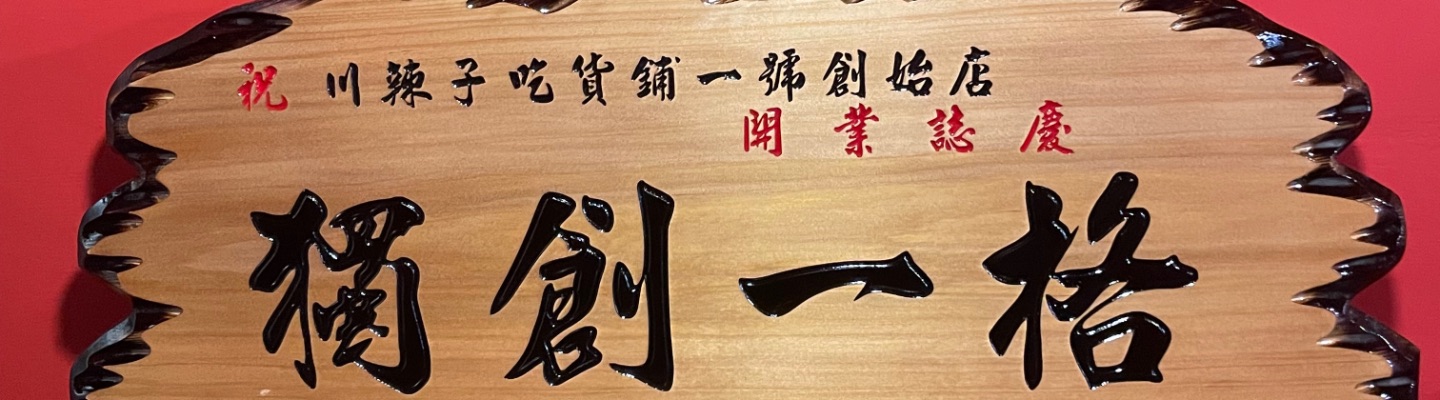 祝 川辣子吃貨鋪一號創始店
開業誌慶
獨創一格